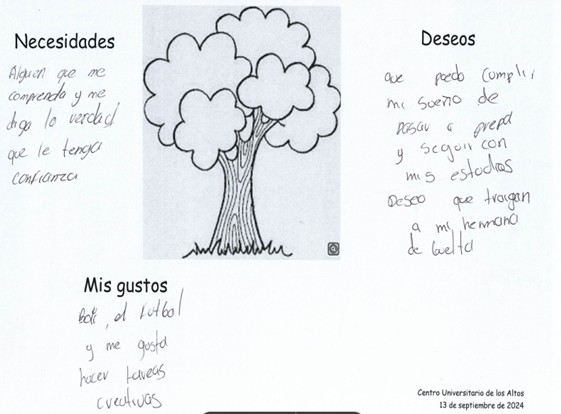 Necesidades
Alguien que me
comprenda y me
diga la verdad
que le tenga
confianza
Deseos
que pueda cumplir
mi sueño de
pasar a prepa
y seguir con
mis estudios
Deseo que traigan
a mi hermana
de buelta
Mis gustos
, el futbol
y me gusta
hacer tareas
creativas
Centro Universitario de los Altos
13 de septiembre de 2024